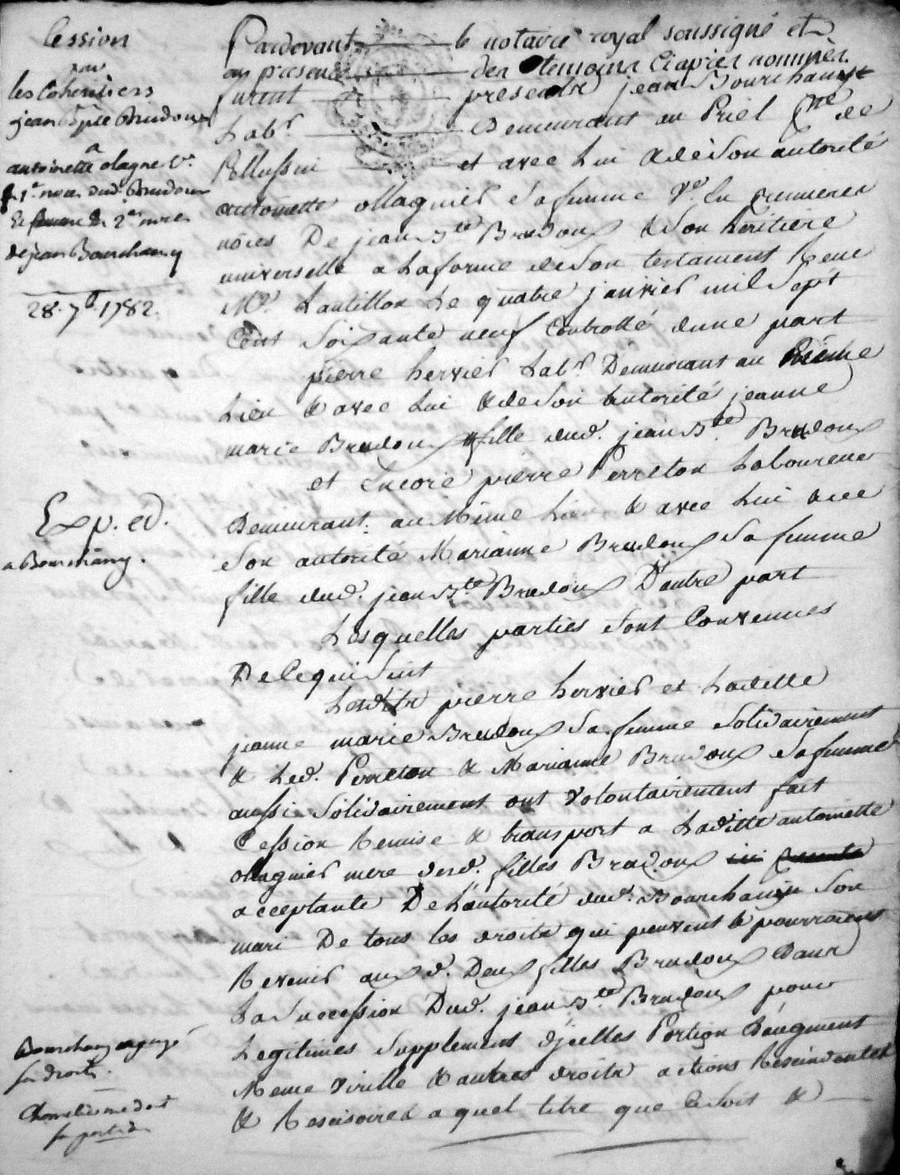 Cession
par
les Coheritiers
jean Bpte Brudoux
a
antoinette olagne Ve
1e noces dud. Brudoux
Et femme en 2e noces
de jean Bourchany
28. 7b. 1782.
Exp. ed.
a Bourchany.
Bourchany a payé
les droits.
Pardevant le notaire royal soussigné et
en presence des temoins Ciapres nommés
furent presents jean Bourchany
Labr Demeurant au Priel pne de
Pellussin et avec Lui & de Son autorité
antoinette ollagnier Sa femme Ve En premieres
nôces De jean Bte Brudoux & Son héritiere
universelle a La forme de Son testament Reçu
Me. Lantillon Le quatre janvier mil Sept
Cent Soixante neuf Controllé d'une part
pierre hervier Labr Demeurant au Même
Lieu & avec Lui & de Son autorité jeanne
marie Brudoux fille dud. jean Bte. Brudoux
et Encore pierre Perreton Laboureur
Demeurant au Même Lieu & avec Lui & de
Son autorité Marianne Brudoux Sa femme
fille dud. jean Bte Brudoux D'autre part
Lesquelles parties Sont Convenues
De Ce qui Suit
Lesdits pierre hervier et Laditte
jeanne marie Brudoux Sa femme Solidairement
& Led. Perreton & Marianne Brudoux Sa femme
aussi Solidairement ont volontairement fait
Cession Remise & transport a Laditte antoinette
ollagnier mere desd. filles Brudoux
acceptante De L'autorité dud. Bourchany Son
mari De tous les droits qui peuvent & pourroient
Revenir auxd. Deux filles Brudoux Dans
La Succession Dud. jean Bte Brudoux pour
Legitimes Supplement d'jcelles Portion D'augment
Meme virille & autres droits actions Rescindentes
& Rescisoires a quel titre que Ce Soit &